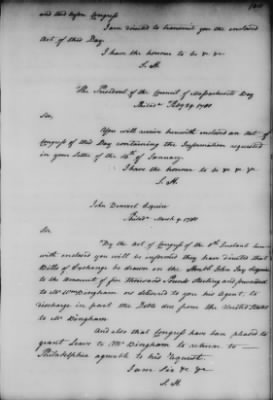 and laid before Congress
I am directed to transmit you the enclosed
Act of this Day.
I have the honour to be &c &c
S. H.
The President of the Council of Massachusetts Bay
Philada Feby 29. 1780
Sir,
You will receive herewith enclosed an Act of
Congress of this Day containing the Information requested
in your letter of the 14th of January.
I have the honour to be &c &c
S. H.
John Benezet Esquire
Philada March 9. 1780
Sir
By the Act of Congress of the 8th Instant here
with enclosed you will be informed they have directed that
Bills of Exchange be drawn on the Honble John Jay Esquire
to the amount of four thousand Pounds Sterling and
to Mr Wm Bingham or delivered to you his Agent, to
discharge in part the Debts due from the United States
to Mr Bingham.
And also that Congress have been pleased to
grant Leave to Mr Bingham to return to
Philadelphia agreeable to his Request.
I am Sir &c &c
S. H.